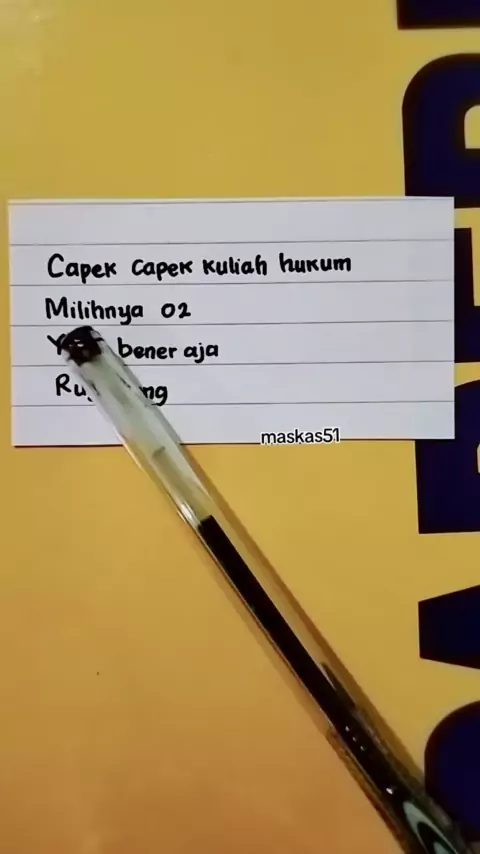 Capek capek kuliah hukum
Milihnya 02
bener aja
maskas51